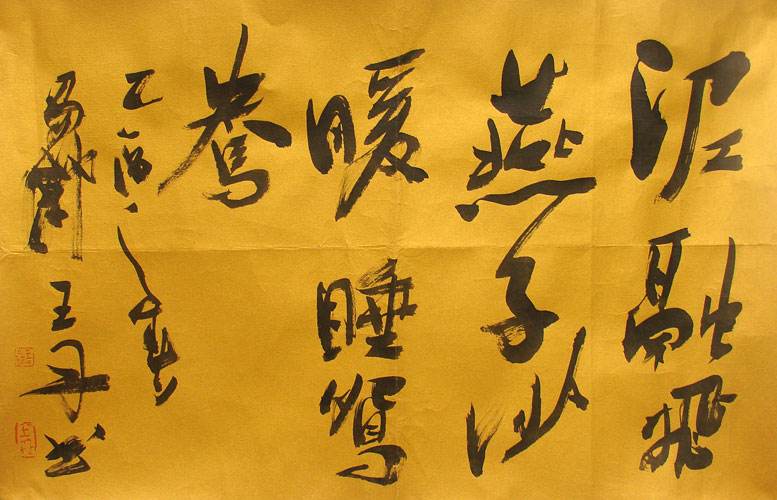 泥融飛
燕子沙
暖睡鴛
鴦
乙酉
王丹书